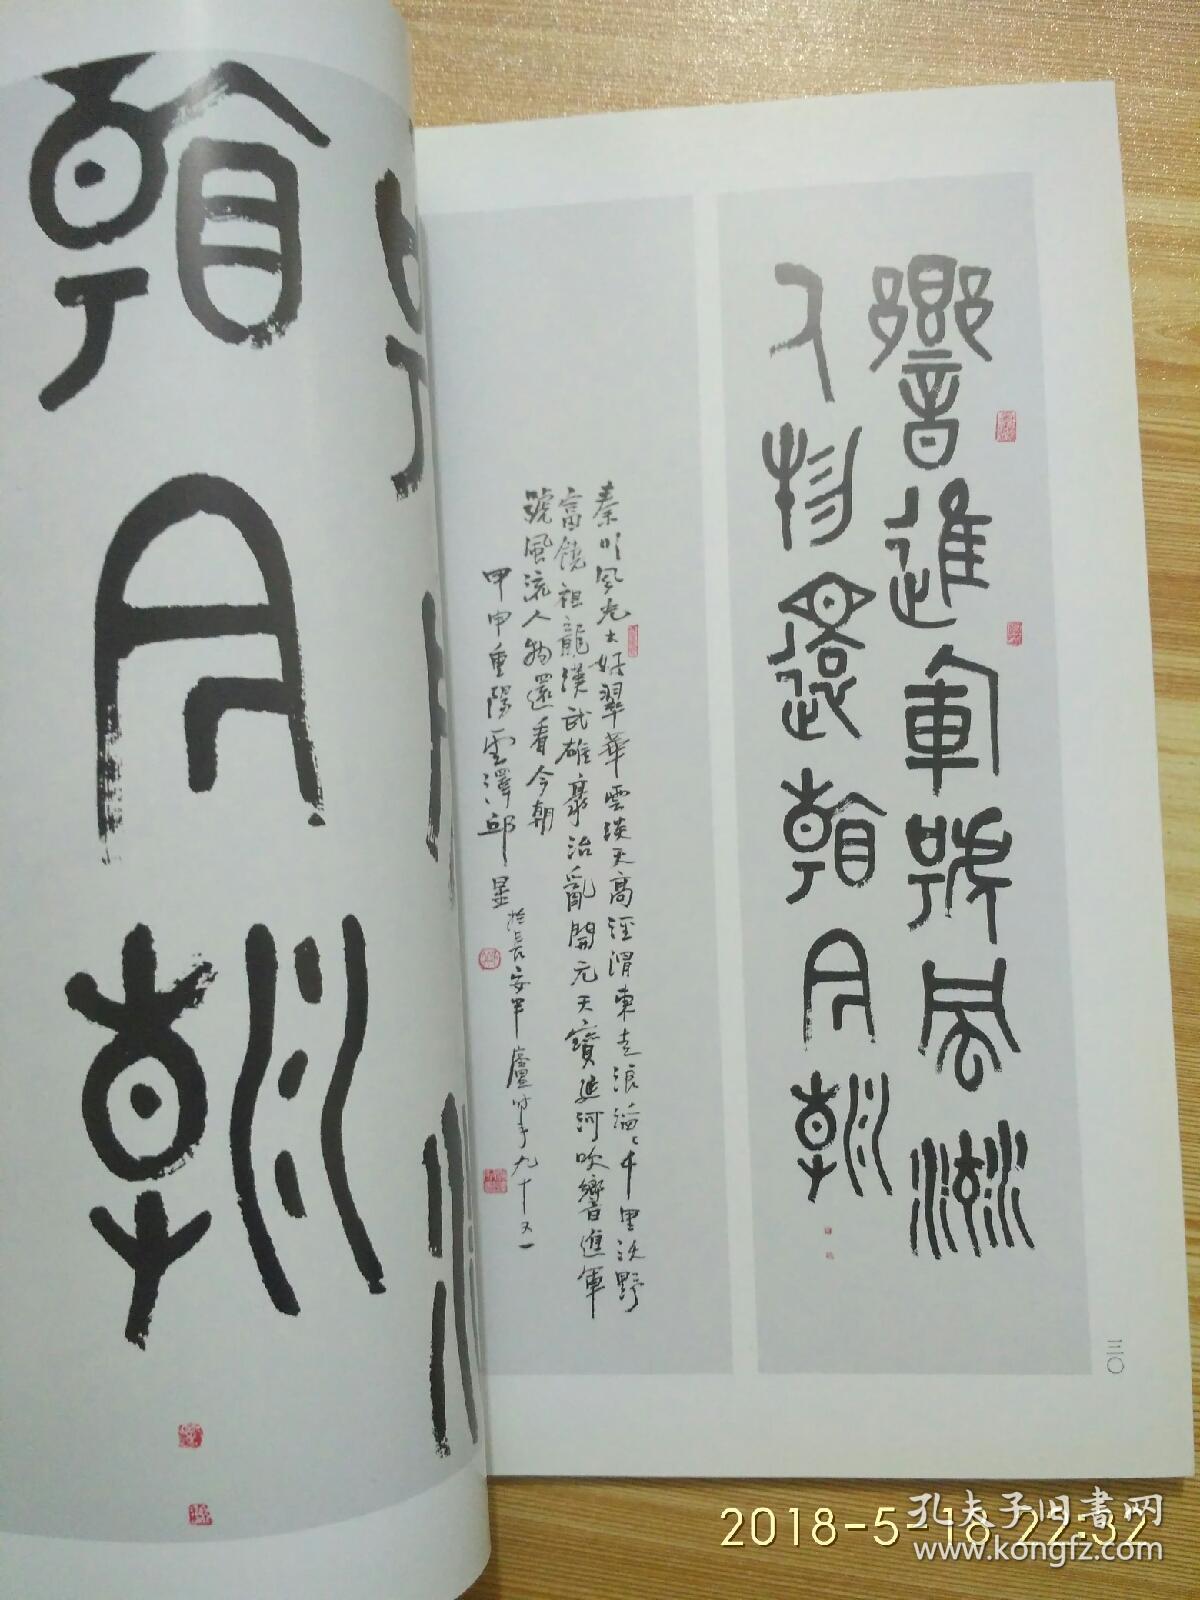 看今朝
響進軍號風流
人物還看今朝
秦川風光大好翠華雲淡天高涇渭東走浪滔〻千里沃野
富饒祖龍漢武雄豪治亂開元天寶延河吹響進軍
號風流人物還看今朝
甲申重陽雲澤邱星於長安半廬時年九十又一
三〇
2018-5-18 22:32
孔夫子旧书网
www.kongfz.com